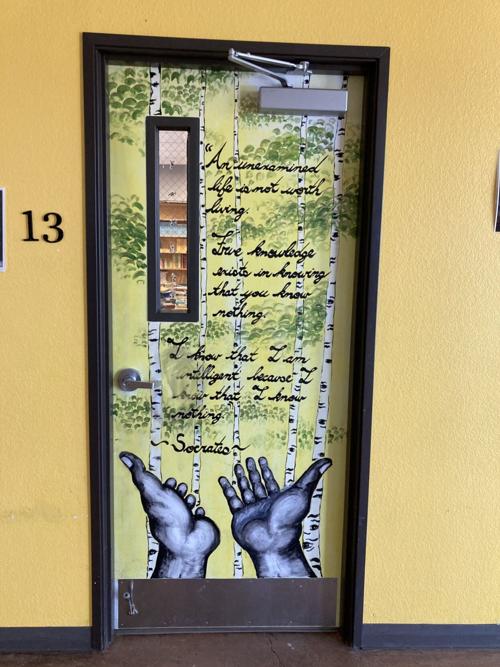 13
"An unexamined
life is not worth
living.
True knowledge
exists in knowing
that you know
nothing.
I know that I am
intelligent because I
know that I know
nothing."
~ Socrates ~